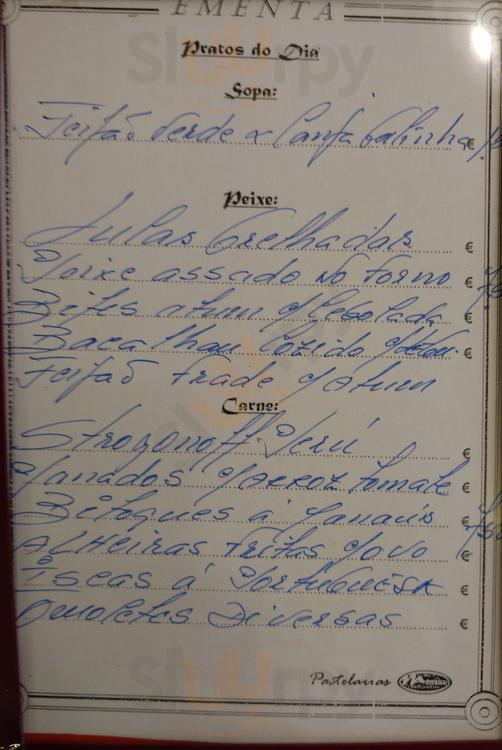 EMENTA
Pratos do Dia
Sopa:
Feijão Verde & Canja Galinha €
Peixe:
Lulas Grelhadas €
Peixe assado no Forno €
Bifes atum c/Cebolada €
Bacalhau Cozido €
Feijão frade c/atum
Carne:
Strogonoff Perú €
Panados c/arroz tomate €
Bitoques á €
Alheiras fritas c/ovo €
Iscas á Portuguesa €
Omoletes Diversas €
Pastelarias